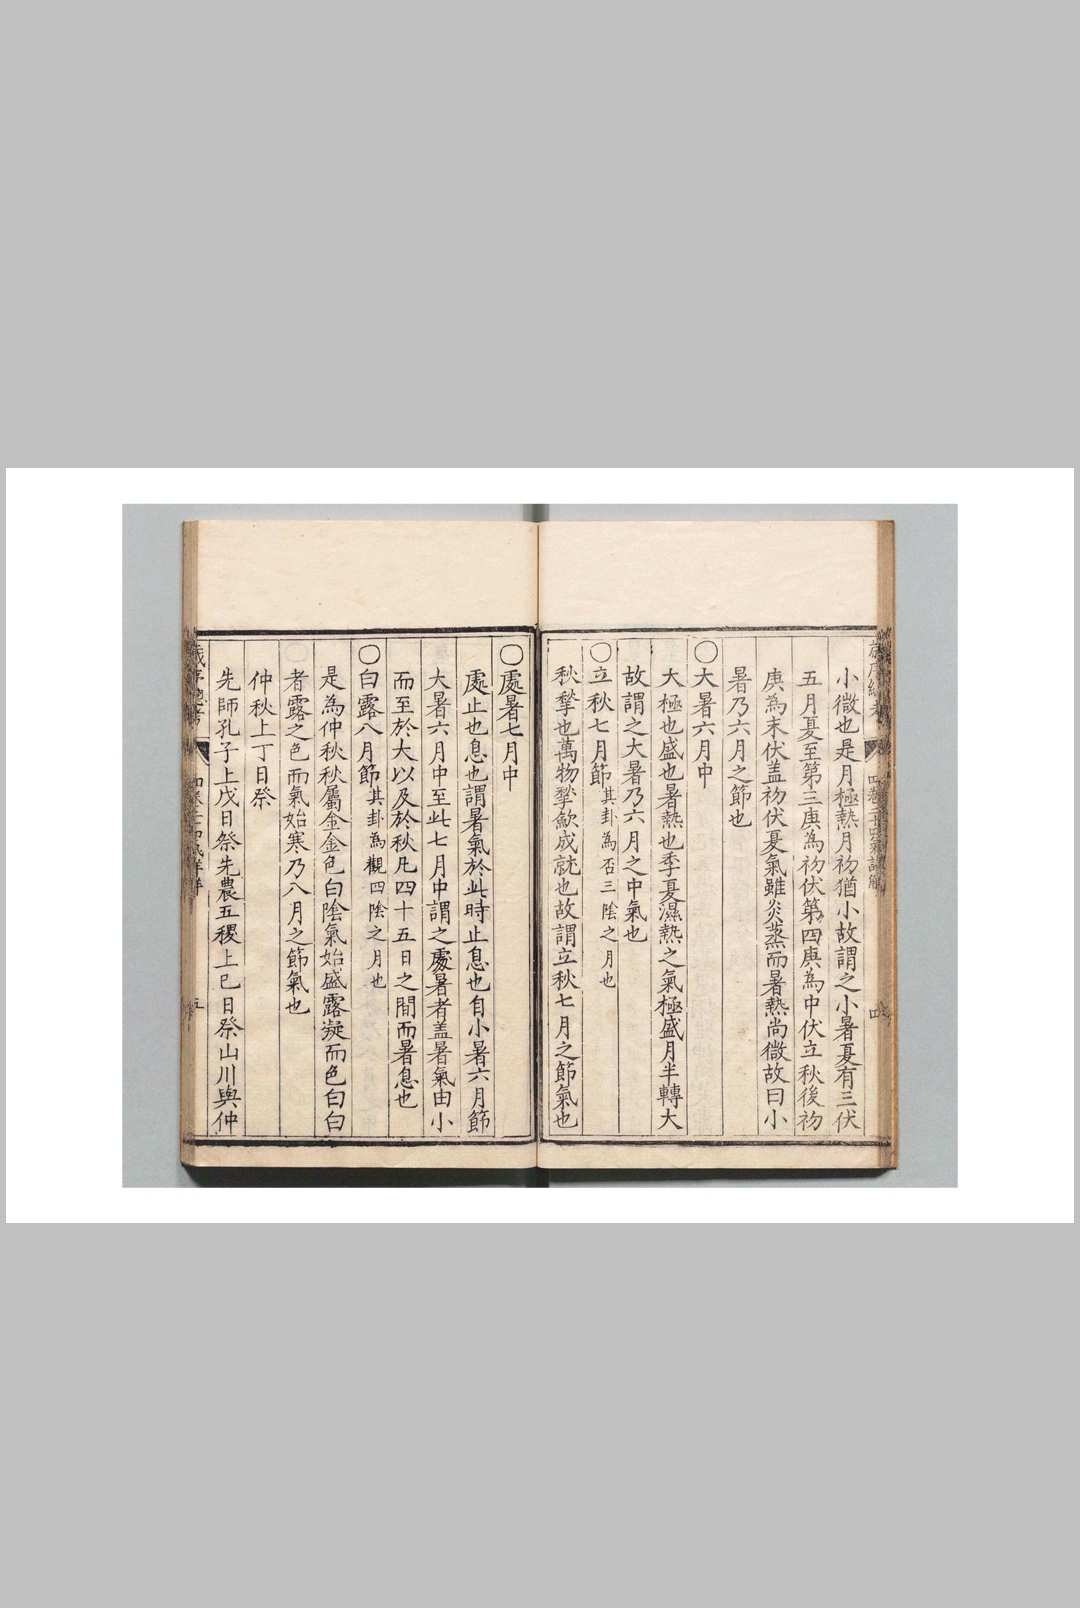 小微也是月極熱月初猶小故謂之小暑夏有三伏
五月夏至第三庚為初伏第四庚為中伏立秋後初
庚為末伏盖初伏夏氣雖炎蒸而暑熱尚微故曰小
暑乃六月之節也
〇大暑六月中
大極也盛也暑熱也季夏濕熱之氣極盛月半轉大
故謂之大暑乃六月之中氣也
〇立秋七月節其卦為否三陰之月也
秋揫也萬物揫歛成就也故謂立秋七月之節氣也
〇處暑七月中
處止也息也謂暑氣於此時止息也自小暑六月節
大暑六月中至此七月中謂之處暑者盖暑氣由小
而至於大以及於秋凡四十五日之間而暑息也
〇白露八月節其卦為觀四陰之月也
是為仲秋秋屬金金色白陰氣始盛露凝而色白白
者露之色而氣始寒乃八月之節氣也
仲秋上丁日祭
先師孔子上戊日祭先農五稷上巳日祭山川與仲
歲序總考
五